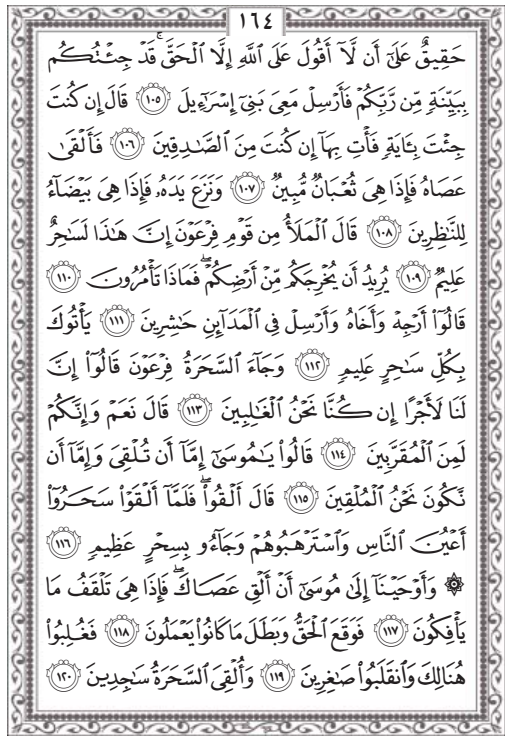 ١٦٤
حَقِيقٌ عَلَىٰٓ أَن لَّآ أَقُولَ عَلَى ٱللَّهِ إِلَّا ٱلْحَقَّ ۚ قَدْ جِئْتُكُم
بِبَيِّنَةٍ مِّن رَّبِّكُمْ فَأَرْسِلْ مَعِىَ بَنِىٓ إِسْرَٰٓءِيلَ ١٠٥ قَالَ إِن كُنتَ
جِئْتَ بِـَٔايَةٍ فَأْتِ بِهَآ إِن كُنتَ مِنَ ٱلصَّـٰدِقِينَ ١٠٦ فَأَلْقَىٰ
عَصَاهُ فَإِذَا هِىَ ثُعْبَانٌ مُّبِينٌ ١٠٧ وَنَزَعَ يَدَهُۥ فَإِذَا هِىَ بَيْضَآءُ
لِلنَّـٰظِرِينَ ١٠٨ قَالَ ٱلْمَلَأُ مِن قَوْمِ فِرْعَوْنَ إِنَّ هَـٰذَا لَسَـٰحِرٌ
عَلِيمٌ ١٠٩ يُرِيدُ أَن يُخْرِجَكُم مِّنْ أَرْضِكُمْ ۖ فَمَاذَا تَأْمُرُونَ ١١٠
قَالُوٓا۟ أَرْجِهْ وَأَخَاهُ وَأَرْسِلْ فِى ٱلْمَدَآئِنِ حَـٰشِرِينَ ١١١ يَأْتُوكَ
بِكُلِّ سَـٰحِرٍ عَلِيمٍ ١١٢ وَجَآءَ ٱلسَّحَرَةُ فِرْعَوْنَ قَالُوٓا۟ إِنَّ
لَنَا لَأَجْرًا إِن كُنَّا نَحْنُ ٱلْغَـٰلِبِينَ ١١٣ قَالَ نَعَمْ وَإِنَّكُمْ
لَمِنَ ٱلْمُقَرَّبِينَ ١١٤ قَالُوا۟ يَـٰمُوسَىٰٓ إِمَّآ أَن تُلْقِىَ وَإِمَّآ أَن
نَّكُونَ نَحْنُ ٱلْمُلْقِينَ ١١٥ قَالَ أَلْقُوا۟ ۖ فَلَمَّآ أَلْقَوْا۟ سَحَرُوٓا۟
أَعْيُنَ ٱلنَّاسِ وَٱسْتَرْهَبُوهُمْ وَجَآءُو بِسِحْرٍ عَظِيمٍ ١١٦
۞ وَأَوْحَيْنَآ إِلَىٰ مُوسَىٰٓ أَنْ أَلْقِ عَصَاكَ ۖ فَإِذَا هِىَ تَلْقَفُ مَا
يَأْفِكُونَ ١١٧ فَوَقَعَ ٱلْحَقُّ وَبَطَلَ مَا كَانُوا۟ يَعْمَلُونَ ١١٨ فَغُلِبُوا۟
هُنَالِكَ وَٱنقَلَبُوا۟ صَـٰغِرِينَ ١١٩ وَأُلْقِىَ ٱلسَّحَرَةُ سَـٰجِدِينَ ١٢٠